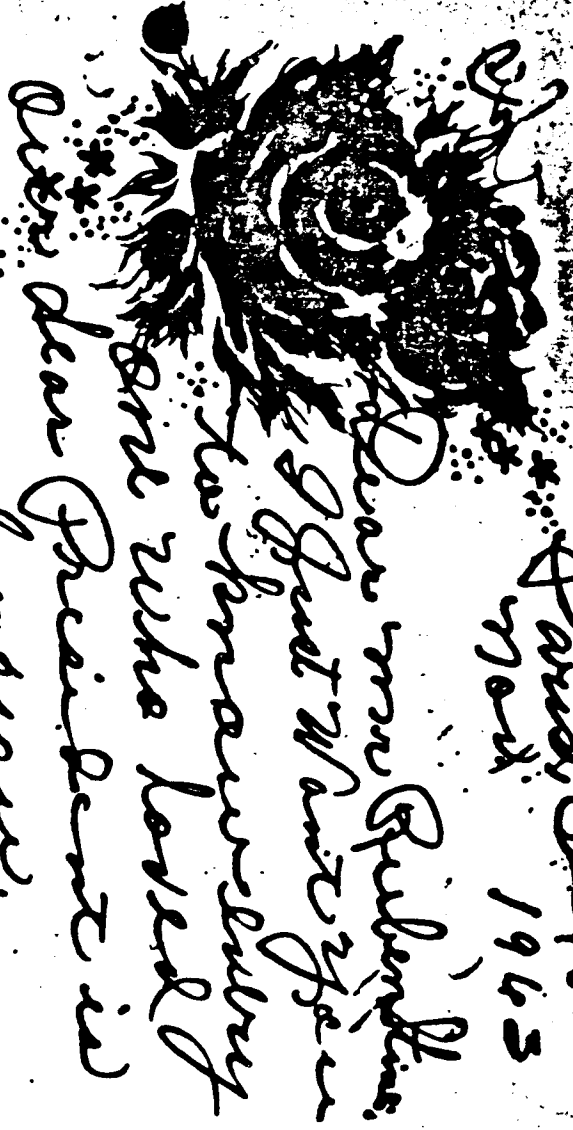 Nov. 1963
Dear mr Rubenstine,
I Just Want you
to know every
One Who loved
Our dear President is